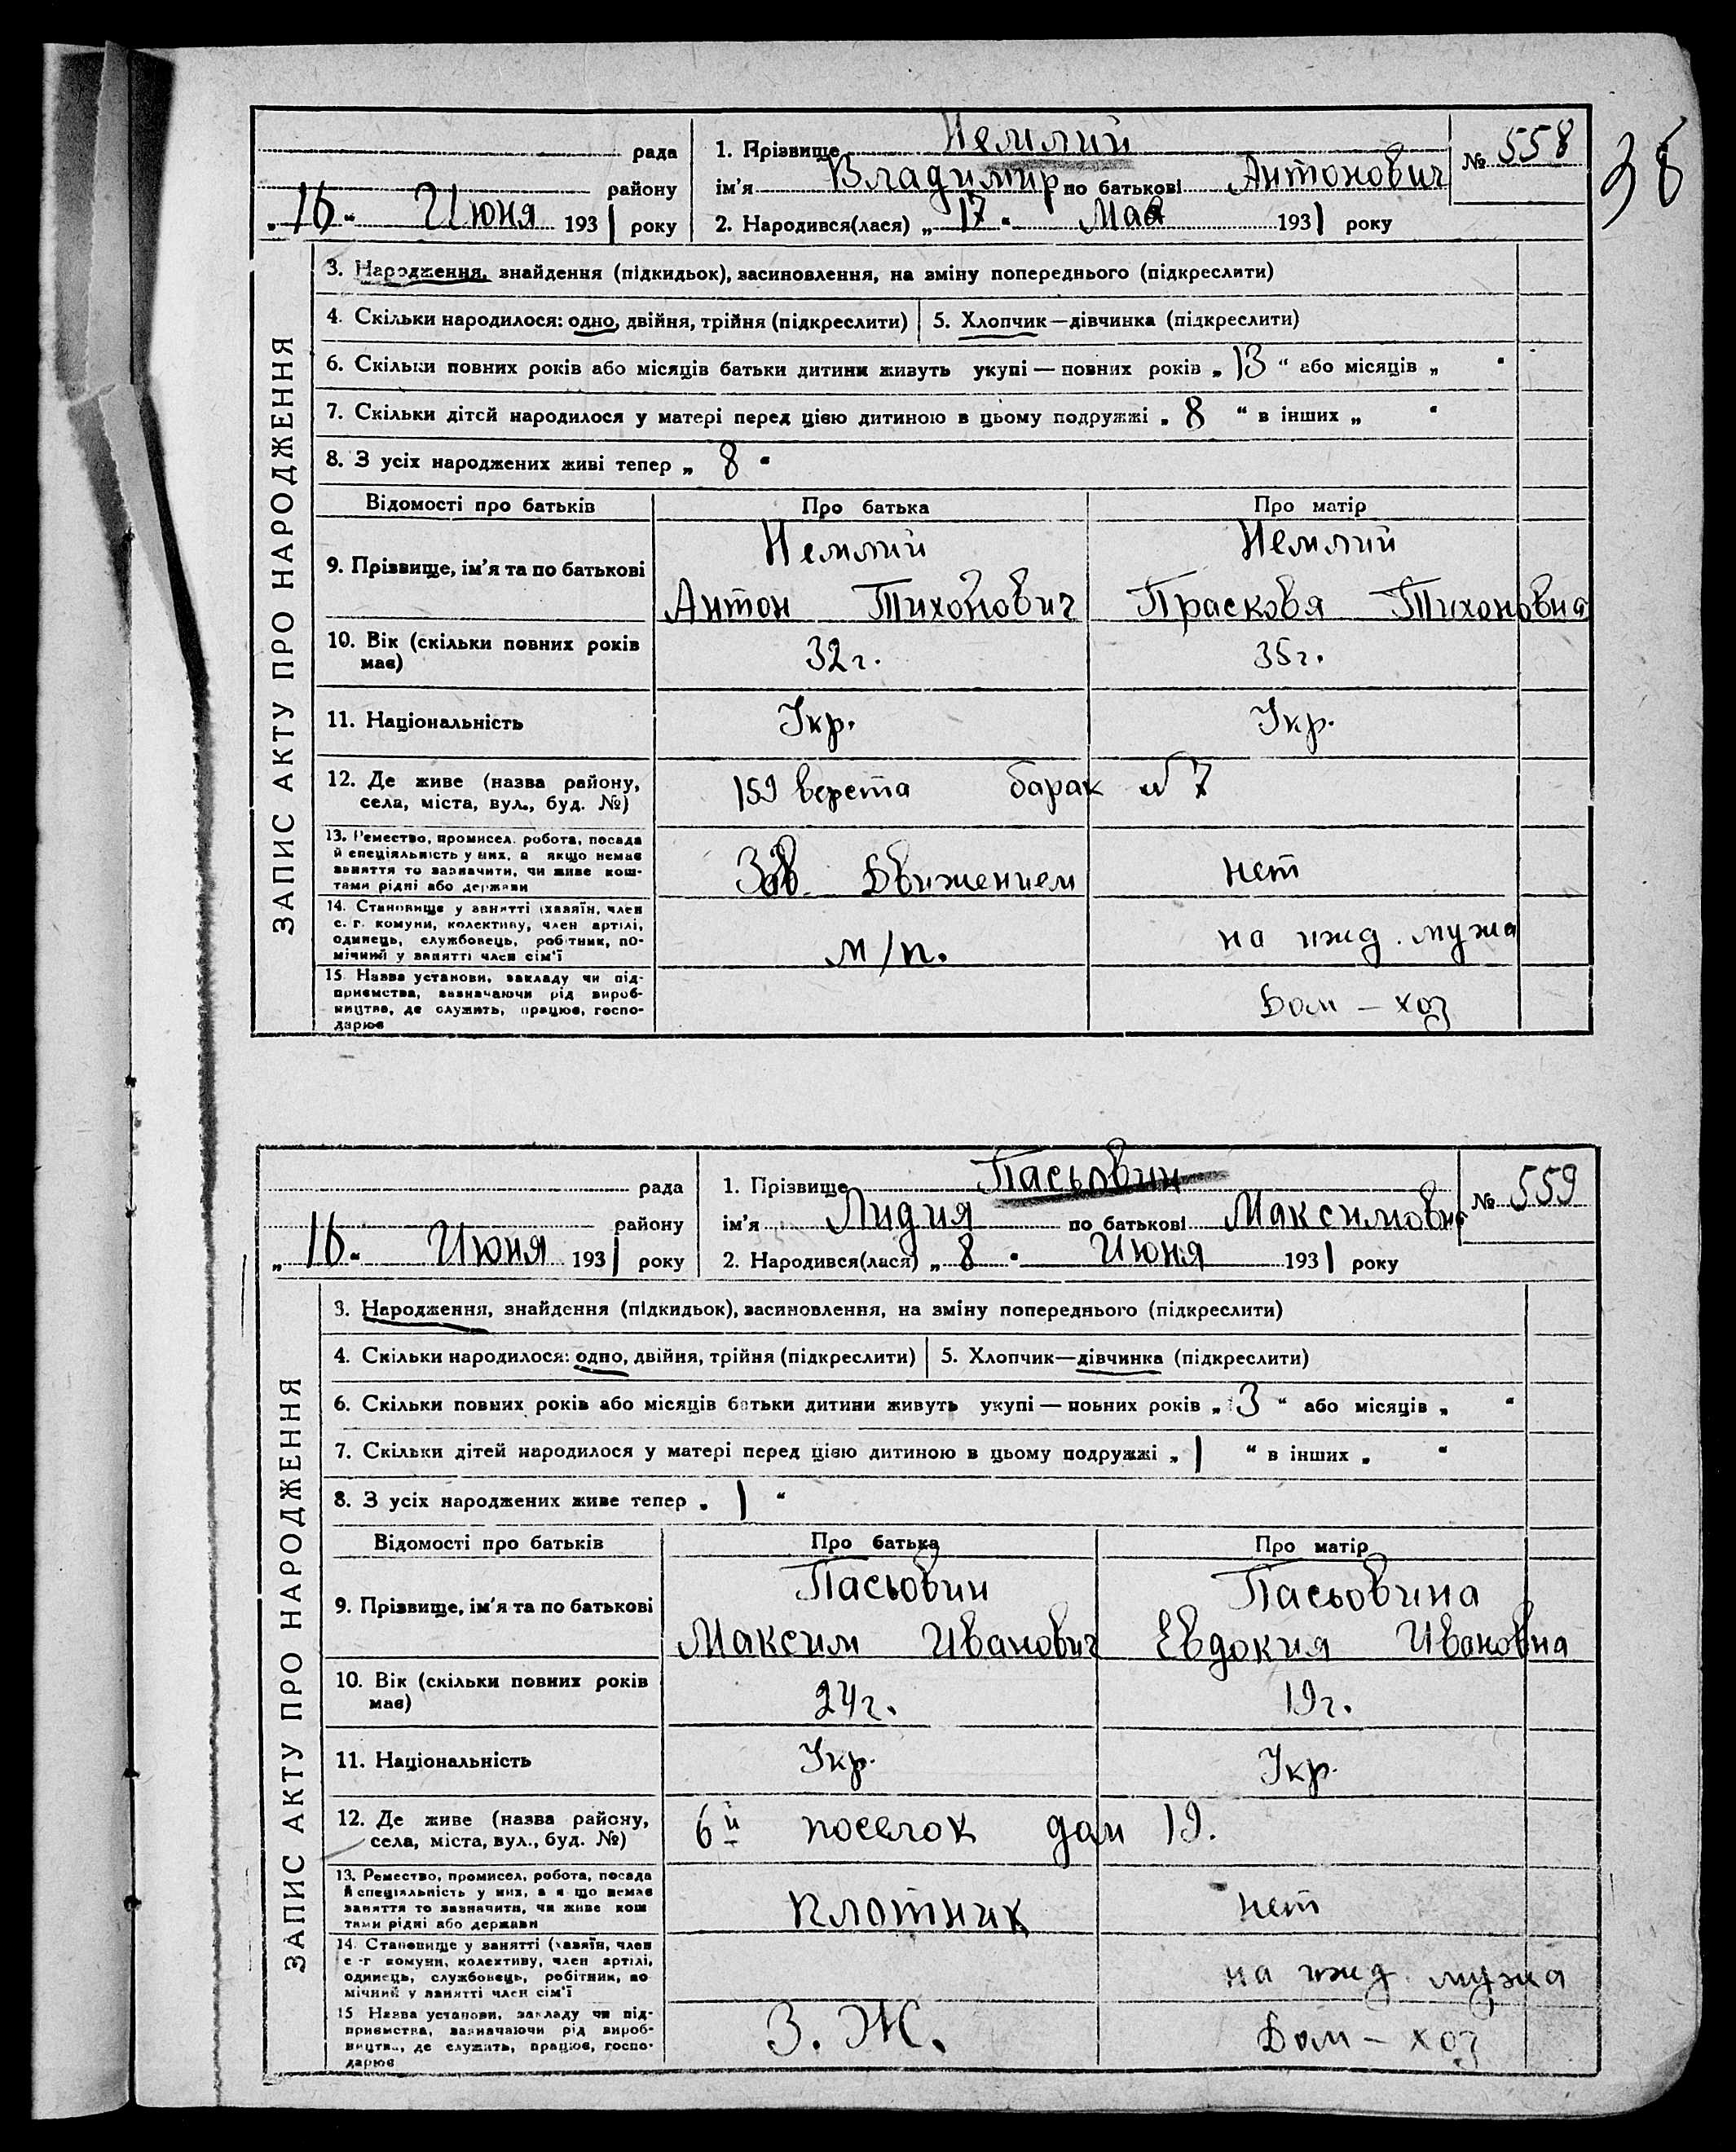 38
ЗАПИС АКТУ ПРО НАРОДЖЕННЯ
рада
району
„16" Июня 1931 року
1. Прізвище Немлий
ім'я Владимир по батькові Антонович
2. Народився(лася) „17" Мая 1931 року
№ 558
3. Народження, знайдення (підкидьок), засиновлення, на зміну попереднього (підкреслити)
4. Скільки народилося: одно, двійня, трійня (підкреслити)
5. Хлопчик—дівчинка (підкреслити)
6. Скільки повних років або місяців батьки дитини живуть укупі — повних років „13" або місяців „ "
7. Скільки дітей народилося у матері перед цією дитиною в цьому подружжі „8" в інших „ "
8. З усіх народжених живі тепер „8"
Відомості про батьків
Про батька
Про матір
9. Прізвище, ім'я та по батькові
Немлий
Антон Тихонович
Немлий
Прасковя Тихоновна
10. Вік (скільки повних років
має)
32 г.
35 г.
11. Національність
Укр.
Укр.
12. Де живе (назва району,
села, міста, вул., буд. №)
159 верста барак № 7
13. Ремество, промисел, робота, посада
й спеціяльність у них, а якщо немає
заняття то зазначити, чи живе кош-
тами рідні або держави
Зав. Движением
нет
14. Становище у занятті (хазяїн, член
с.-г. комуни, колективу, член артілі,
одинець, службовець, робітник, по-
мічний у занятті член сім'ї
м/п.
на ижд. мужа
15. Назва установи, закладу чи під-
приємства, зазначаючи рід вироб-
ництва, де служить, працює, госпо-
дарює
Дом – хоз
ЗАПИС АКТУ ПРО НАРОДЖЕННЯ
рада
району
„16" Июня 1931 року
1. Прізвище Пасьовин
ім'я Лидия по батькові Максимовна
2. Народився(лася) „8" Июня 1931 року
№ 559
3. Народження, знайдення (підкидьок), засиновлення, на зміну попереднього (підкреслити)
4. Скільки народилося: одно, двійня, трійня (підкреслити)
5. Хлопчик—дівчинка (підкреслити)
6. Скільки повних років або місяців батьки дитини живуть укупі — повних років „3" або місяців „ "
7. Скільки дітей народилося у матері перед цією дитиною в цьому подружжі „1" в інших „ "
8. З усіх народжених живе тепер „1"
Відомості про батьків
Про батька
Про матір
9. Прізвище, ім'я та по батькові
Пасьовин
Максим Иванович
Пасьовина
Евдокия Ивановна
10. Вік (скільки повних років
має)
24 г.
19 г.
11. Національність
Укр.
Укр.
12. Де живе (назва району,
села, міста, вул., буд. №)
6й поселок дом 19.
13. Ремество, промисел, робота, посада
й спеціяльність у них, а якщо немає
заняття то зазначити, чи живе кош
тами рідні або держави
Плотник
нет
14. Становище у занятті (хазяїн, член
с.-г. комуни, колективу, член артілі,
одинець, службовець, робітник, по
мічний у занятті член сім'ї
на ижд. мужа
15 Назва установи, закладу чи під-
приємства, зазначаючи рід вироб-
ництва, де служить, працює, госпо-
дарює
З. Ж.
Дом – хоз